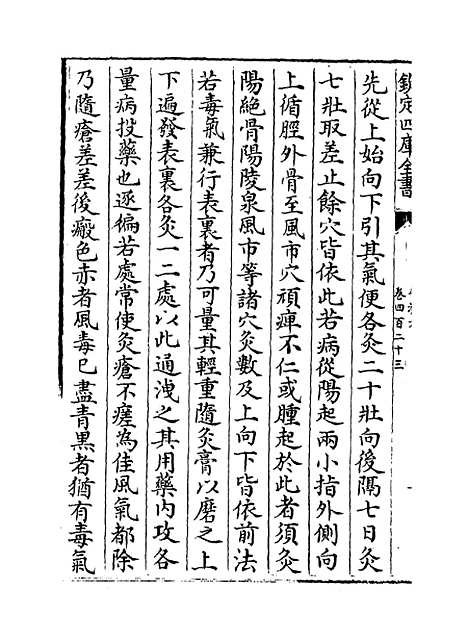 欽定四庫全書
卷四百二十三
先從上始向下引其氣便各灸二十壯向後隔七日灸
七壯取差止餘穴皆依此若病從陽起兩小指外側向
上循脛外骨至風市穴頑痺不仁或腫起於此者須灸
陽絶骨陽陵泉風市等諸穴灸數及上向下皆依前法
若毒氣兼行表裏者乃可量其輕重隨灸膏以磨之上
下遍發表裏各灸一二處以此通洩之其用藥内攻各
量病投藥也逐偏若處常使灸瘡不瘥為佳風氣都除
乃隨瘡差差後瘢色赤者風毒已盡青黒者猶有毒氣